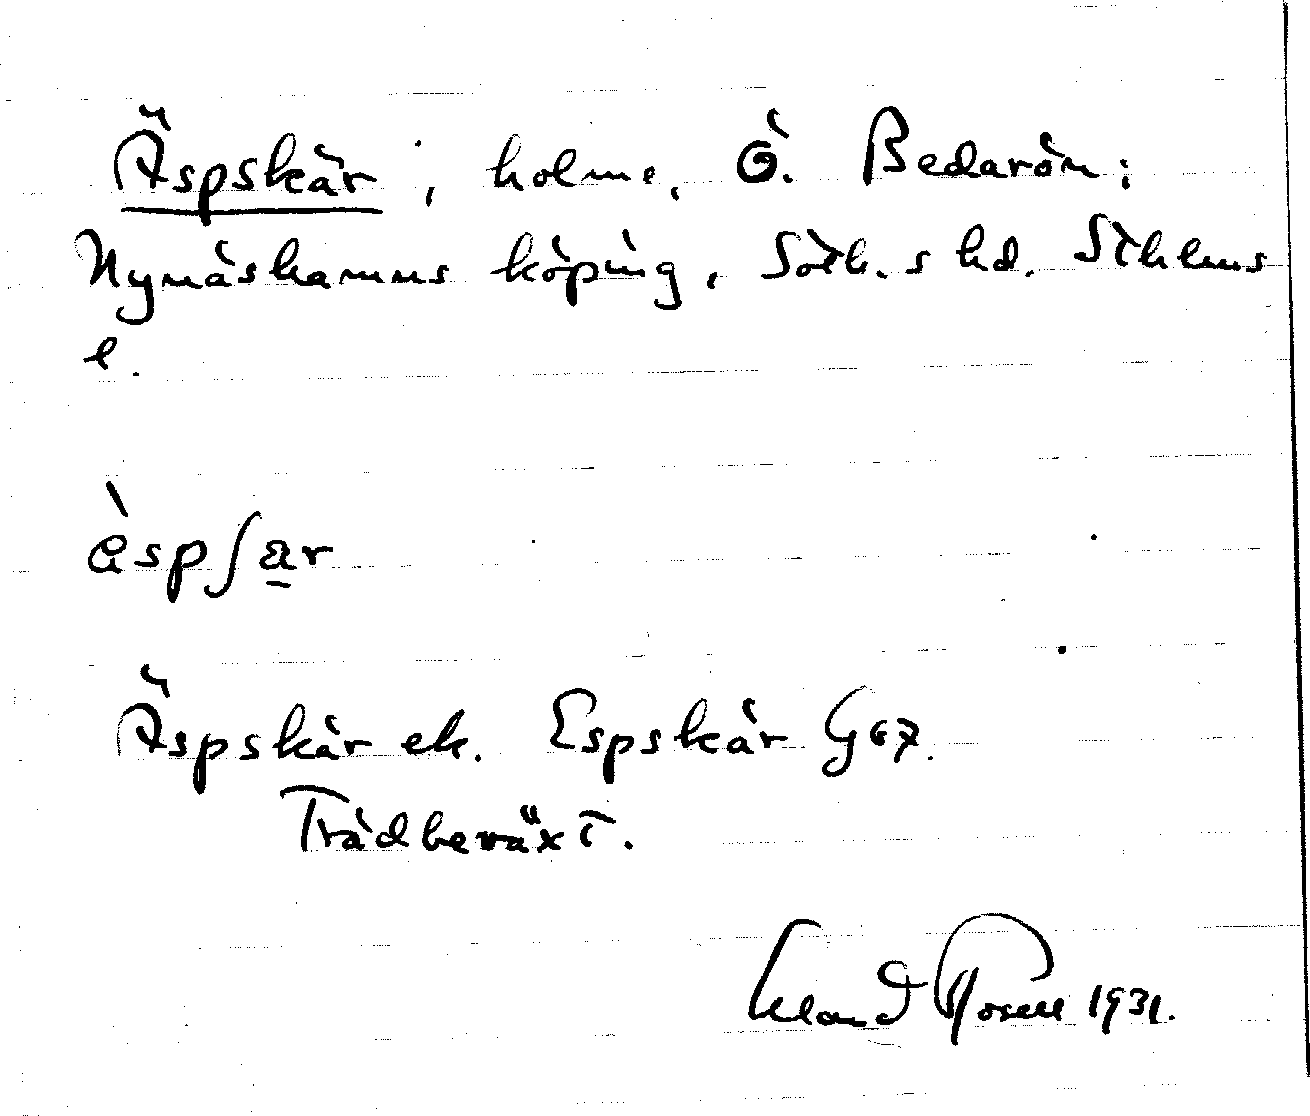 Äspskär, holme, Ö. Bedarön;
Nynäshamns köping, Soth.s hd. Sthlms
l.
èspʃa̲r
Äspskär ek. Espskär G67.
Trädbeväxt.
Rosell 1931.